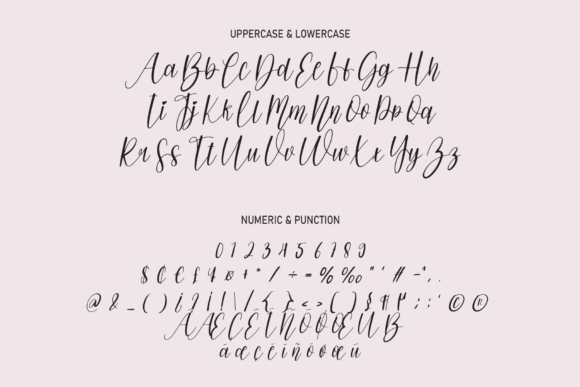 UPPERCASE & LOWERCASE
Aa Bb Cc Dd Ee Ff Gg Hh
Ii Jj Kk Ll Mm Nn Oo Pp Qq
Rr Ss Tt Uu Vv Ww Xx Yy Zz
NUMERIC & PUNCTION
0 1 2 3 4 5 6 7 8 9
$ ₵ € £ ¥ ¤ + * / ÷ = % ‰ " ' # - ~ , .
@ & _ ( ) ¿ ? ¡ ! \ / { } < > ( ) § ¶ µ ; : ' © ®
À Æ Ç É Í Ñ Ó Ø Œ Ú ß
á æ ç é í ñ ó ø œ ú